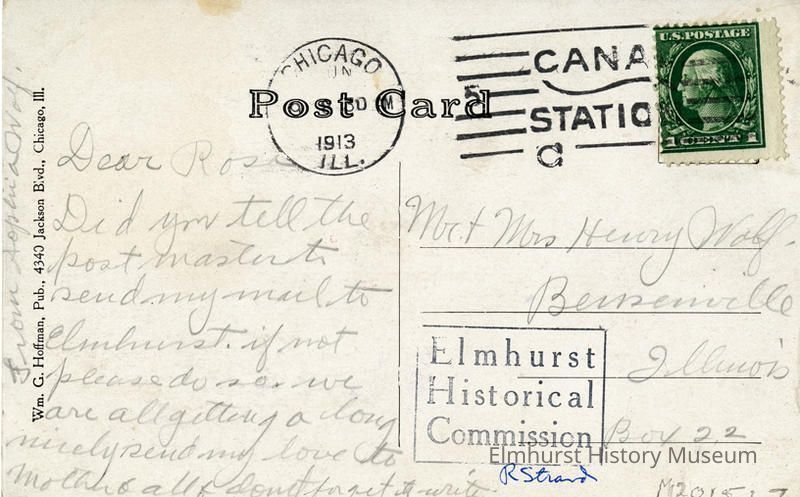 CHICAGO
JUN
30 M
1913
ILL.
5
CANA
STATIO
C
U.S. POSTAGE
1 CENT 1
Post Card
Wm. G. Hoffman, Pub., 4340 Jackson Blvd., Chicago, Ill.
From Sophia Wolf.
Dear Rosa
Did you tell the
post master to
send my mail to
Elmhurst. if not
please do so. we
are all getting a long
nicely send my love to
Mother & all & dont forget to write
Mr. & Mrs Henry Wolf.
Bensenville
Illinois
Box 22
Elmhurst
Historical
Commission
Elmhurst History Museum
R Strand